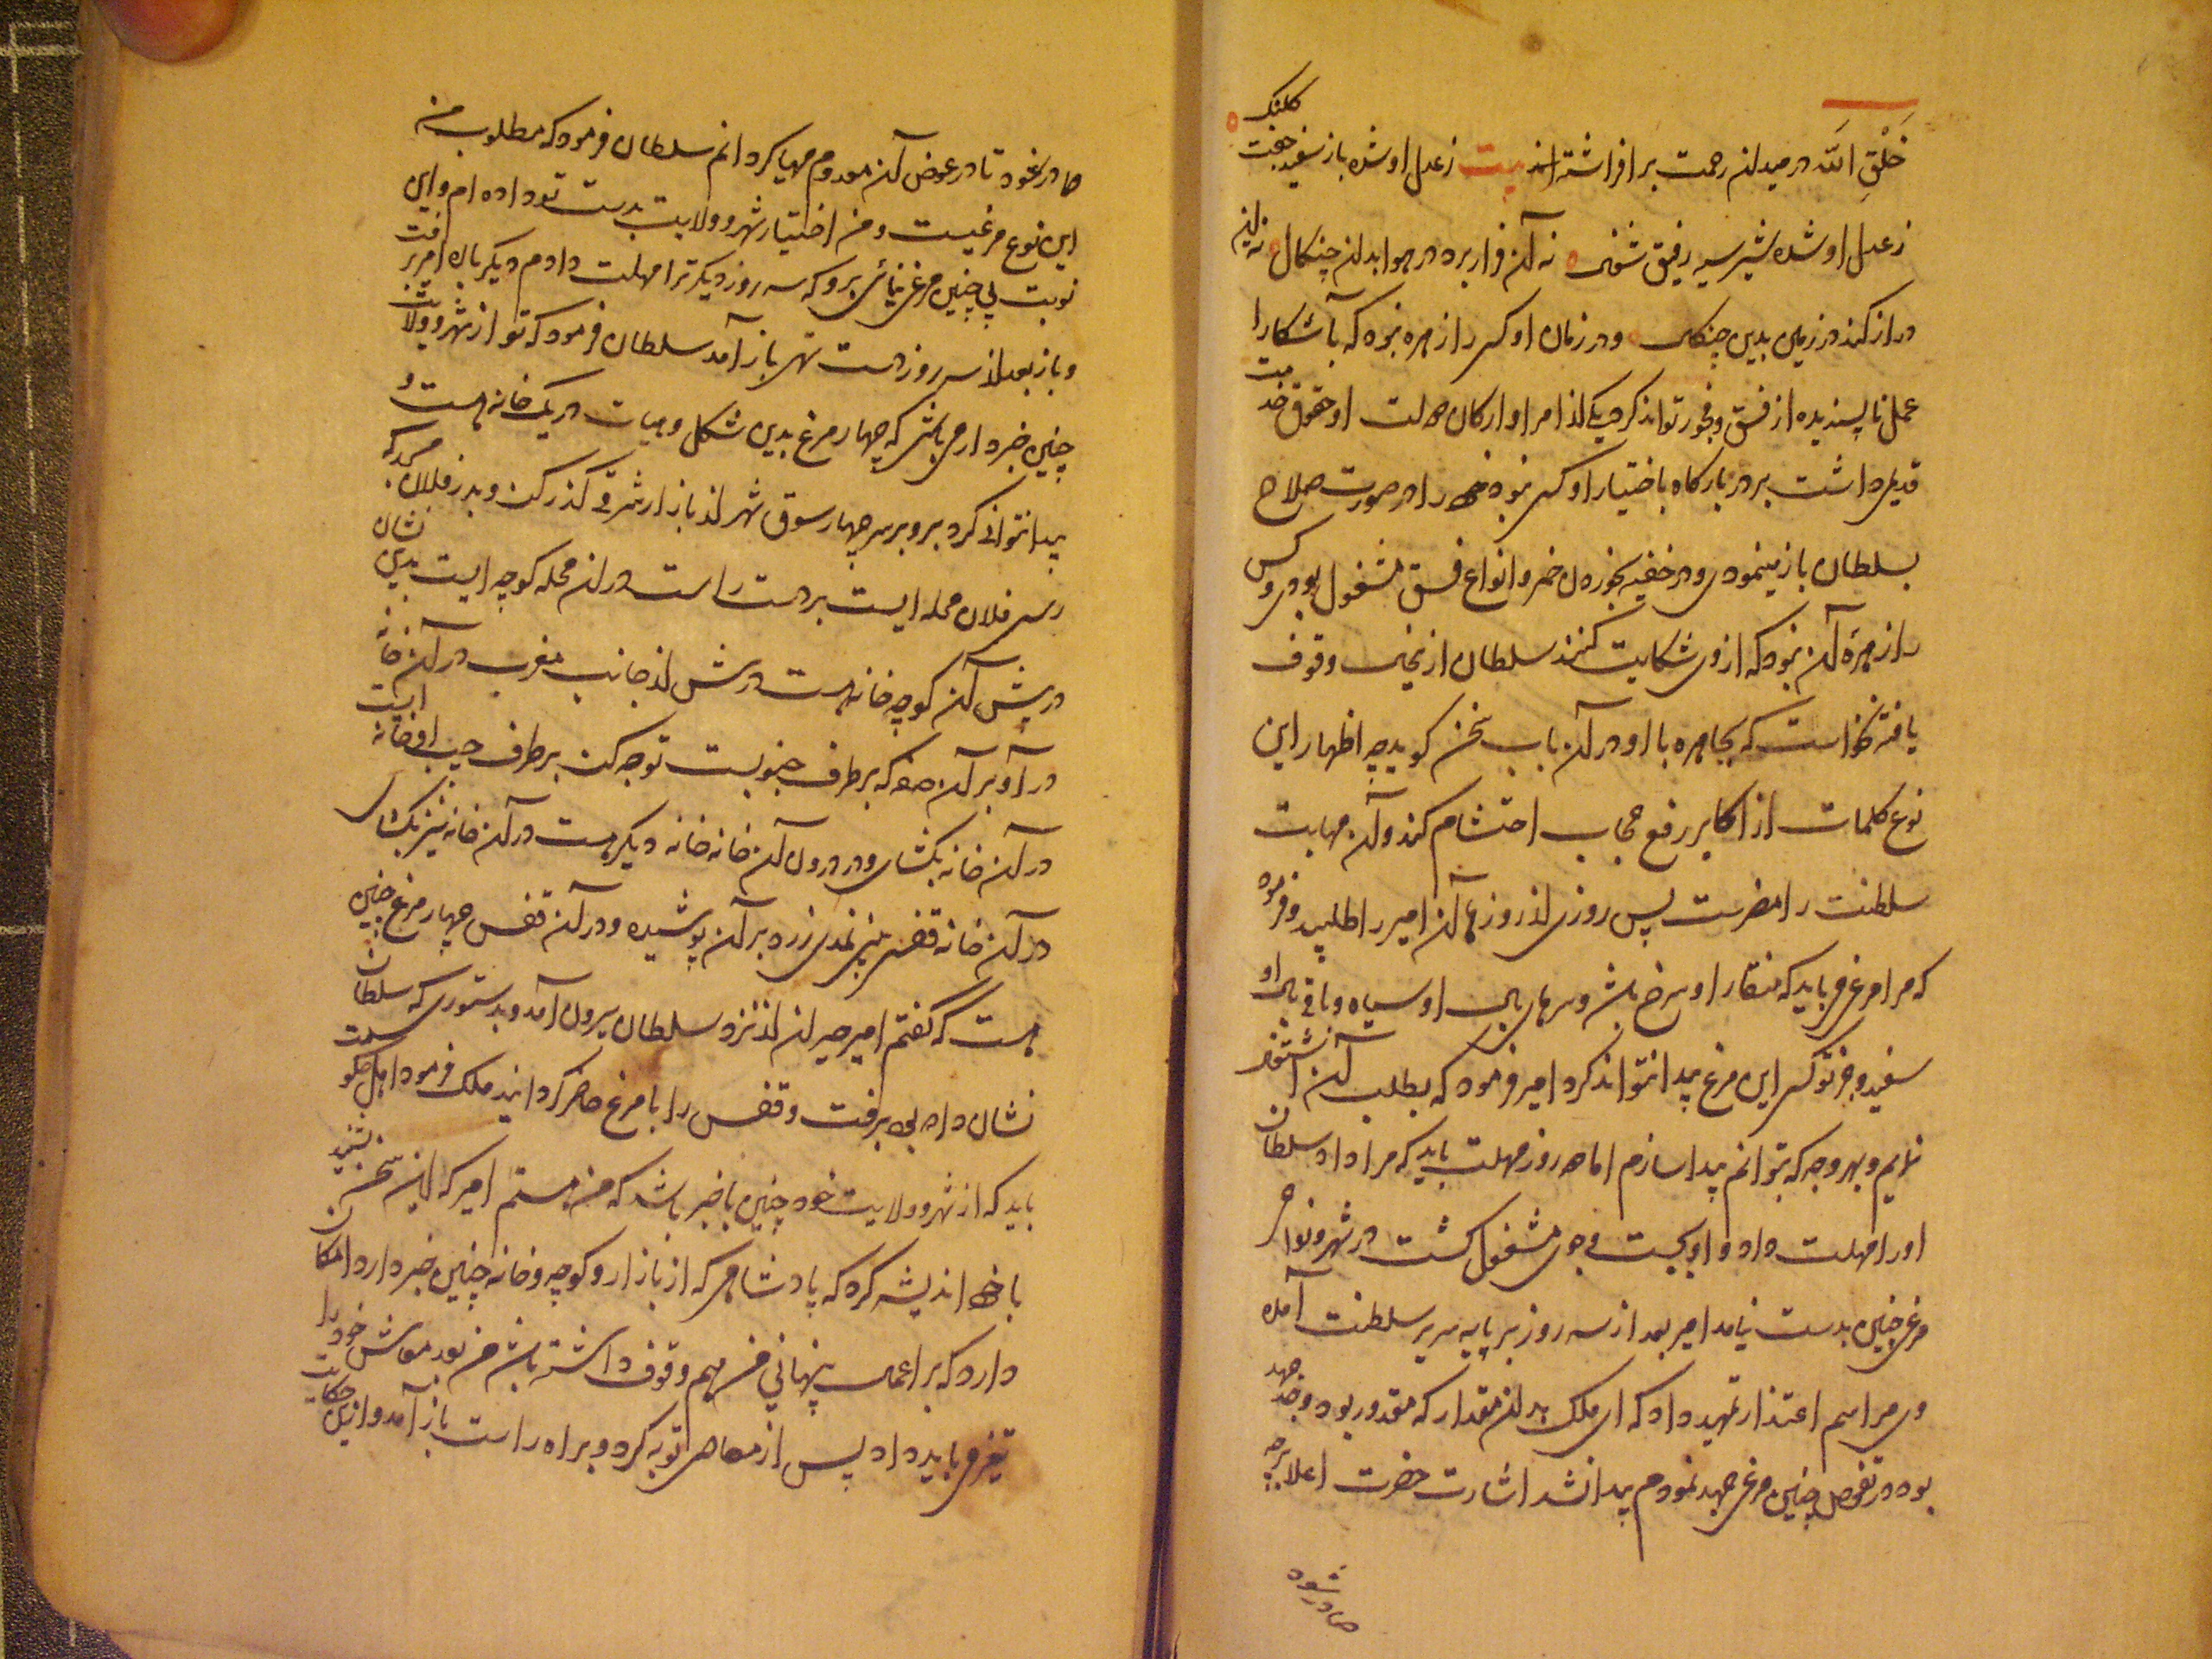 خَلْقِ اللّه در میدان رحمت برافراشته اند بیت ز عدل او شده باز سفید جفت کلنگ
ز عدل او شده شیر سیه رفیق شغال نه آن فرار برد در هوا بدان چنگال نه این
دراز کند در زمین بدین چنگال و در زمان او کس را زهره نبود که بآشکارا
عمل ناپسندیده از فسق و فجور تواند کرد یکی از امرا و ارکان دولت او حقوق خدمت
قدیمی داشت بر در بارگاه باختیار او کس نبود خود را در صورت صلاح
بسلطان باز مینمودی و در خفیه بخوردن خمر و انواع فسق مشغول بودی و کس
را زهرهٔ آن نبود که از وی شکایت کنند سلطان ازین وقوف
یافته نخواست که بجاهره با او در آن باب سخن گوید چه اظهار این
نوع کلمات از اکابر رفع حجاب احتشام کند و آن مهابت
سلطنت را مضرست پس روزی از روزها آن امیر را طلبید و فرمود
که مرا مرغی میباید که منقار او سرخ باشد و سرهای بال او سیاه و باقی بال او
سفید و جز تو کس این مرغ پیدا نتواند کرد امیر فرمود که بطلب آن اشتغال
نمایم و بهر وجه که بتوانم پیدا سازم اما سه روز مهلت باید که مرا داد سلطان
او را مهلت داد و او بجست و جوی مشغول گشت در شهر و نواحی
مرغی چنین بدست نیامد امیر بعد از سه روز بر پایه سریر سلطنت آمده
وی مراسم اعتذار تمهید داد که ای ملک بدان مقدار که مقدور بود و جد و جهد
بود در تفحص چنین مرغی جهد نمودم پیدا نشد اشارت حضرت اعلا بر چه
صادر شود
صادر شود تا در عوض آن معدوم مهیا گردانم سلطان فرمود که مطلوب من
این نوع مرغیست و من اختیار شهر و ولایت بدست تو داده ام و این
نوبت بی چنین مرغی نیائی برو که سه روز دیگر ترا مهلت دادم دیگر بار امیر برفت
و باز بعد از سه روز دست تهی باز آمد سلطان فرمود که تو از شهر و ولایت
چنین خبردار می باشی که چهار مرغ بدین شکل و هیات در یک خانه هست و
پیدا نتوانی کرد برو بر سر چهار سوق شهر از بازار شرقی گذر کن و بدر فلان
رسی فلان محله ایست بر دست راست در آن محله کوچه ایست بدین نشان
در پیش آن کوچه خانه هست درش از جانب مغرب در آن خانه
درآ و بر آن صفه که بر طرف جنوبست توجه کن بر طرف چپ او خانه ایست
در آن خانه بکشای و در درون آن خانه خانه دیگر هست در آن خانه نیز بکشای
در آن خانه قفسی بینی نمدی زرد بر آن پوشیده و در آن قفس چهار مرغ چنین
هست که گفتم امیر حیران از نزد سلطان بیرون آمد و بدستوری که سلطان
نشان داده بود برفت و قفس را با مرغ حاضر گردانید ملک فرمود اهل حکومت
باید که از شهر و ولایت خود چنین باخبر باشد که من هستم امیر که این سخن بشنید
با خود اندیشه کرد که پادشاهی که از بازار و کوچه و خانه چنین خبر دارد امکان
دارد که بر اعمال پنهانی من هم وقوف داشته باشد من بعد معاش خود را
تغیر می باید داد پس از معاصی توبه کرد و براه راست باز آمد و ازین حکایت